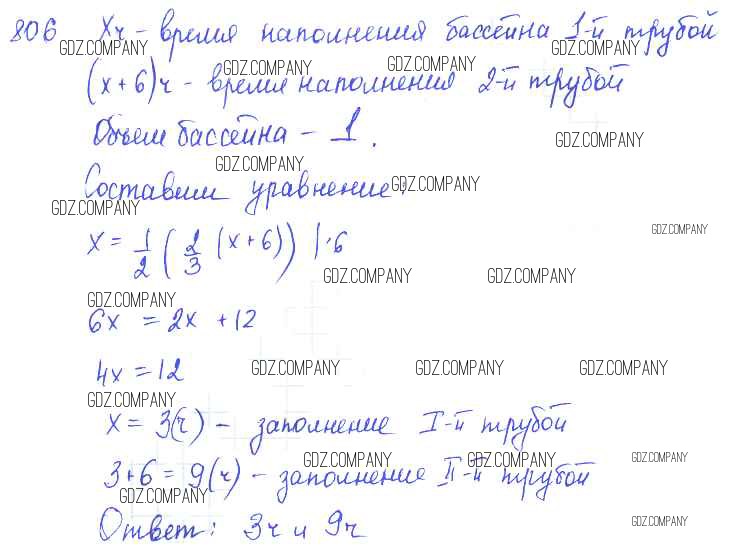 806 Xч - время наполнения бассейна 1-й трубой
GDZ.COMPANY GDZ.COMPANY
GDZ.COMPANY GDZ.COMPANY
(x+6)ч - время наполнения 2-й трубой
Объем бассейна - 1.
GDZ.COMPANY
GDZ.COMPANY
Составим уравнение:
GDZ.COMPANY
GDZ.COMPANY
GDZ.COMPANY
x = 1/2 (2/3 (x+6)) |·6
GDZ.COMPANY GDZ.COMPANY
GDZ.COMPANY
6x = 2x + 12
4x = 12
GDZ.COMPANY GDZ.COMPANY GDZ.COMPANY
GDZ.COMPANY
x = 3(ч) - заполнение I-й трубой
GDZ.COMPANY GDZ.COMPANY GDZ.COMPANY
3+6 = 9(ч) - заполнение II-й трубой
GDZ.COMPANY
Ответ: 3ч и 9ч
GDZ.COMPANY